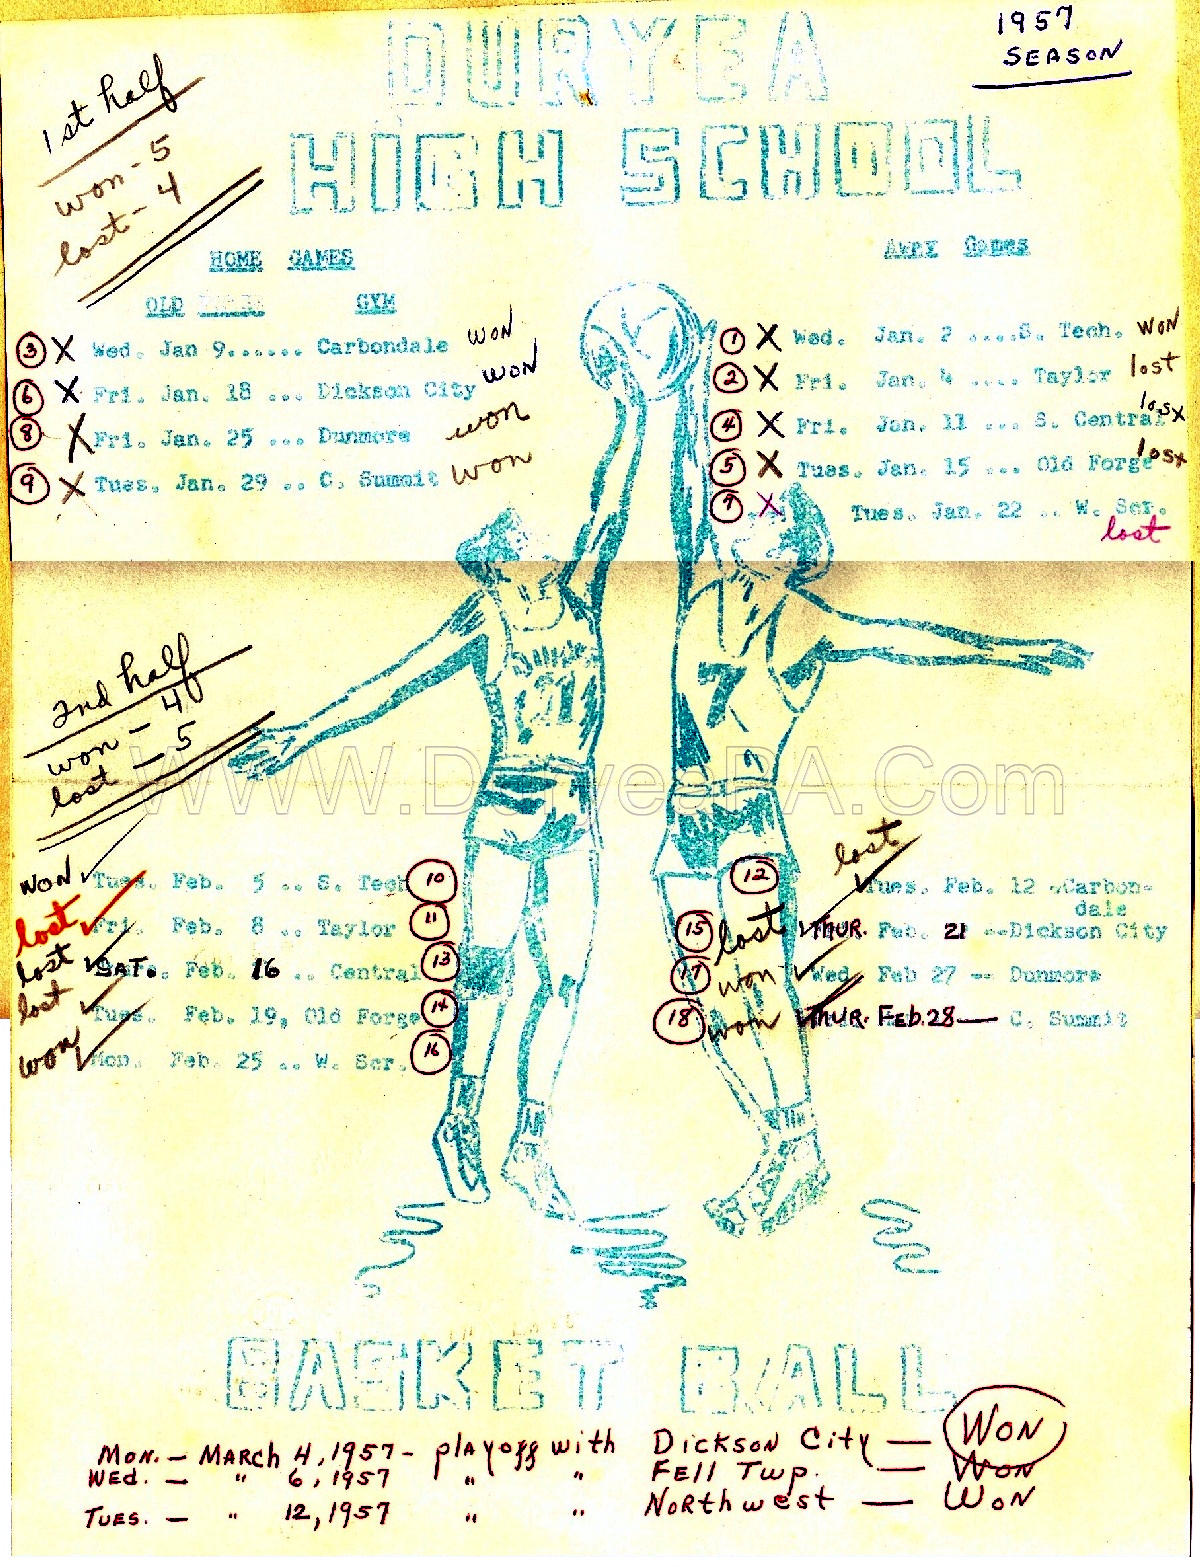 1957
SEASON
DURYEA
HIGH SCHOOL
1st half
won - 5
lost - 4
HOME GAMES
OLD GYM
③ X Wed. Jan 9...... Carbondale WON
⑥ X Fri. Jan. 18 ... Dickson City WON
⑧ X Fri. Jan. 25 ... Dunmore won
⑨ X Tues. Jan. 29 .. C. Summit won
Away Games
① X Wed. Jan. 2 ....S. Tech. WON
② X Fri. Jan. 4 .... Taylor lost
④ X Fri. Jan. 11 ... S. Central lost
⑤ X Tues. Jan. 15 ... Old Forge lost
⑦ X Tues. Jan. 22 .. W. Scr.
lost
21
7
2nd half
won - 4
lost - 5
WWW.DuryeaPA.Com
WON Tues. Feb. 5 .. S. Tech ⑩
lost Fri. Feb. 8 .. Taylor ⑪
lost SAT. Feb. 16 .. Central ⑬
lost Tues. Feb. 19, Old Forge ⑭
won Mon. Feb. 25 .. W. Scr. ⑯
⑫ lost Tues. Feb. 12 -Carbon-
dale
⑮ lost THUR. Feb. 21 --Dickson City
⑰ won Wed. Feb 27 -- Dunmore
⑱ won THUR. FEB. 28 — C. Summit
BASKET BALL
MON. - MARCH 4, 1957 - playoff with DICKSON CITY — WON
WED. - " 6, 1957 " " FELL TWP. — WON
TUES. - " 12, 1957 " " NORTHWEST — WON